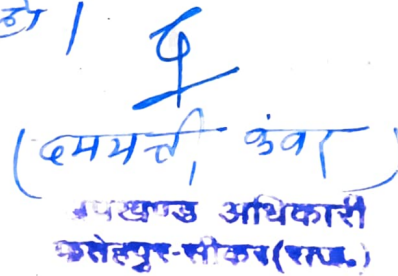 द
(दमयन्ती कंवर)
उपखण्ड अधिकारी
फतेहपुर-सीकर (राज.)